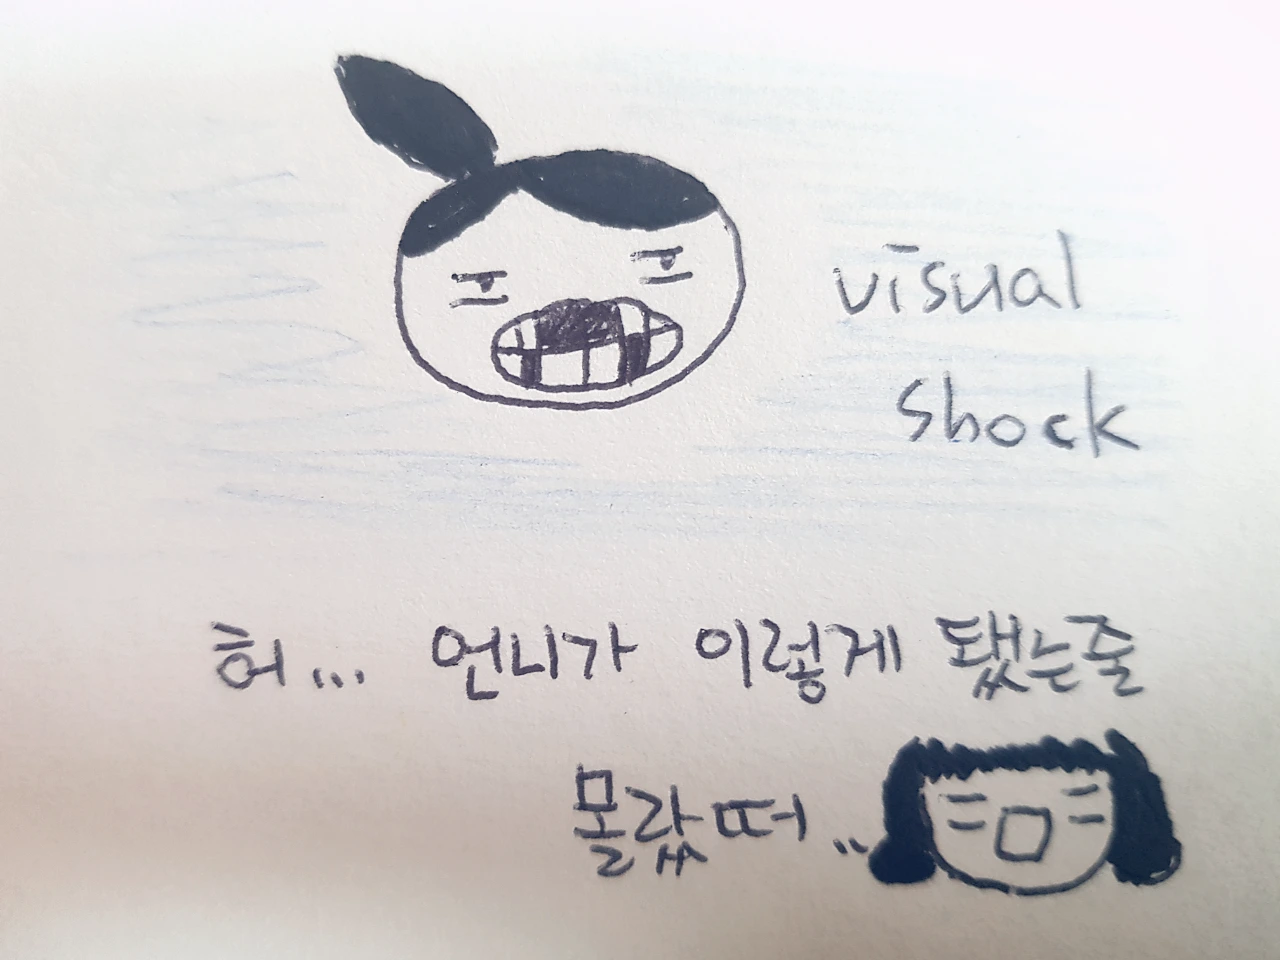 visual
shock
허... 언니가 이렇게 됐는줄
몰랐떠..